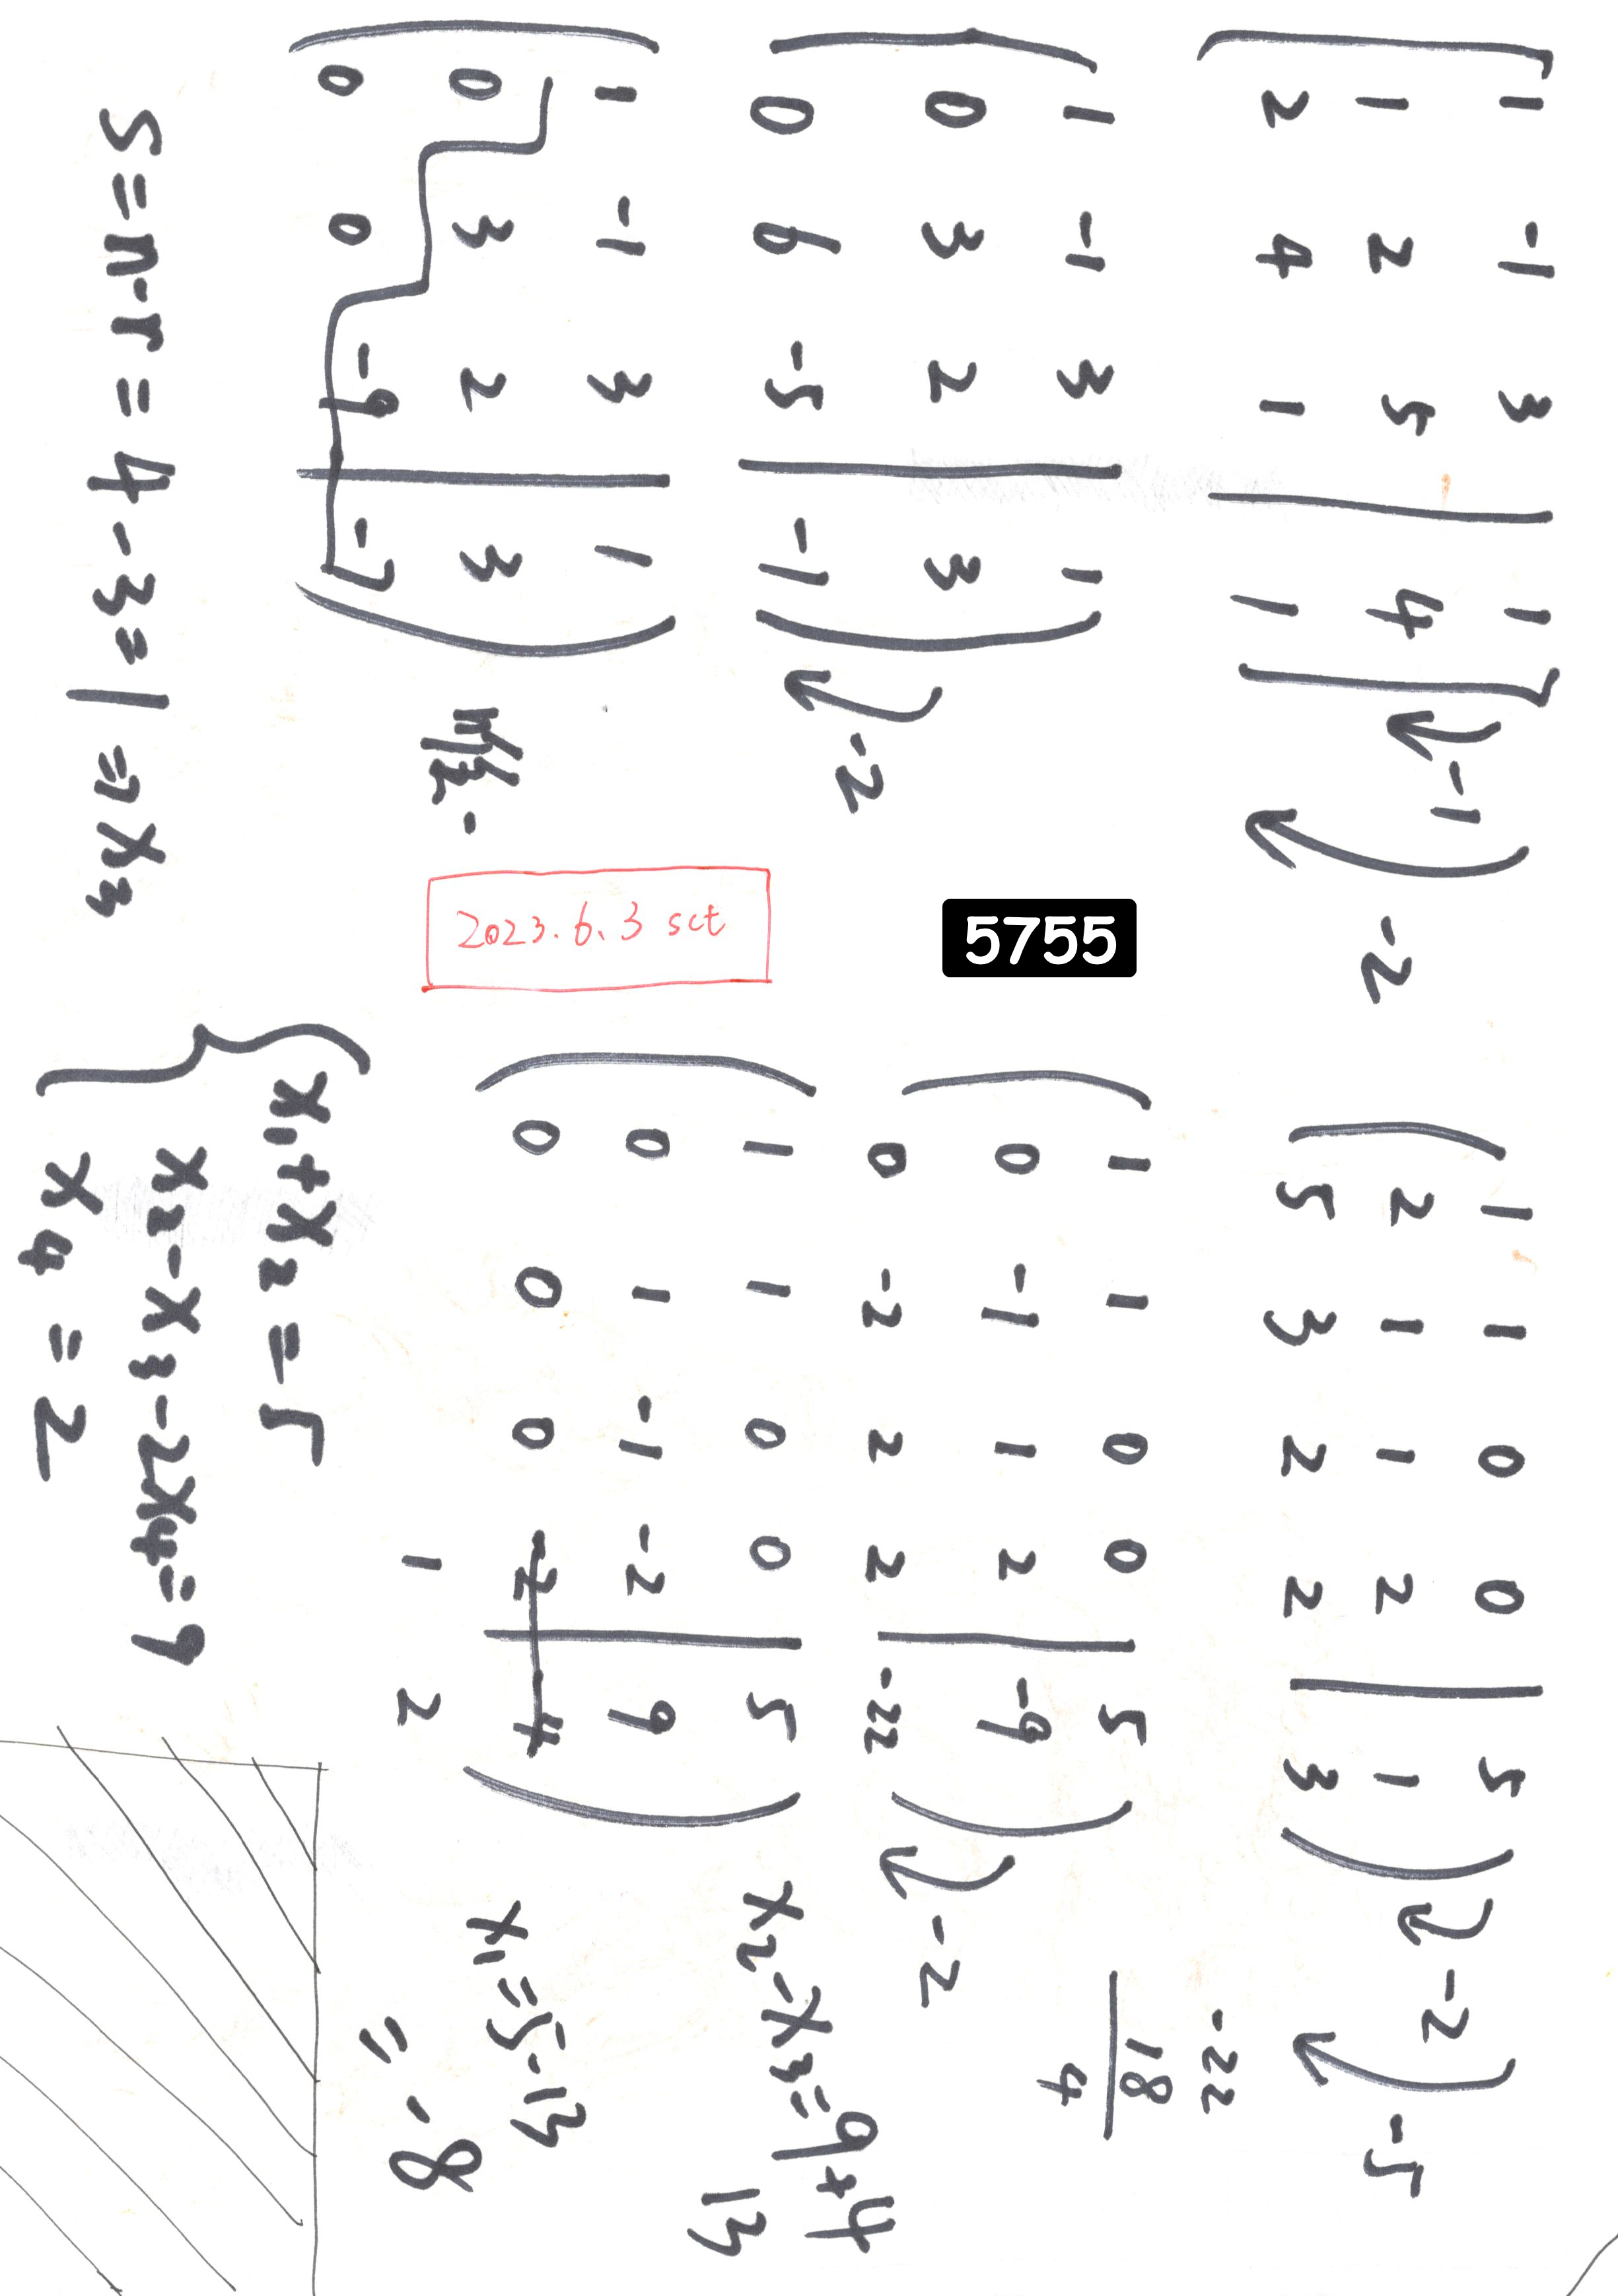 1 -1 3 | 1
1 2 5 | 4 -1
2 4 1 | 1 -2
1 -1 3 | 1
0 3 2 | 3
0 6 -5 | -1 -2
1 -1 3 | 1
0 3 2 | 3 唯一.
0 0 -9 | -7
S=n-r=4-3=1 ⇒ x3
5755
2023.6.3 sct
1 1 0 0 | 5
2 1 1 2 | 1 -2
5 3 2 2 | 3 -5
-22
18
4
1 1 0 0 | 5
0 -1 1 2 | -9
0 -2 2 2 | -22 -2
1 1 0 0 | 5
0 1 -1 -2 | 9
0 0 0
1 2
x2-x3=9+4
13
x1=5-13
=-8
x1+x2=5
x2-x3-2x4=9
x4=2